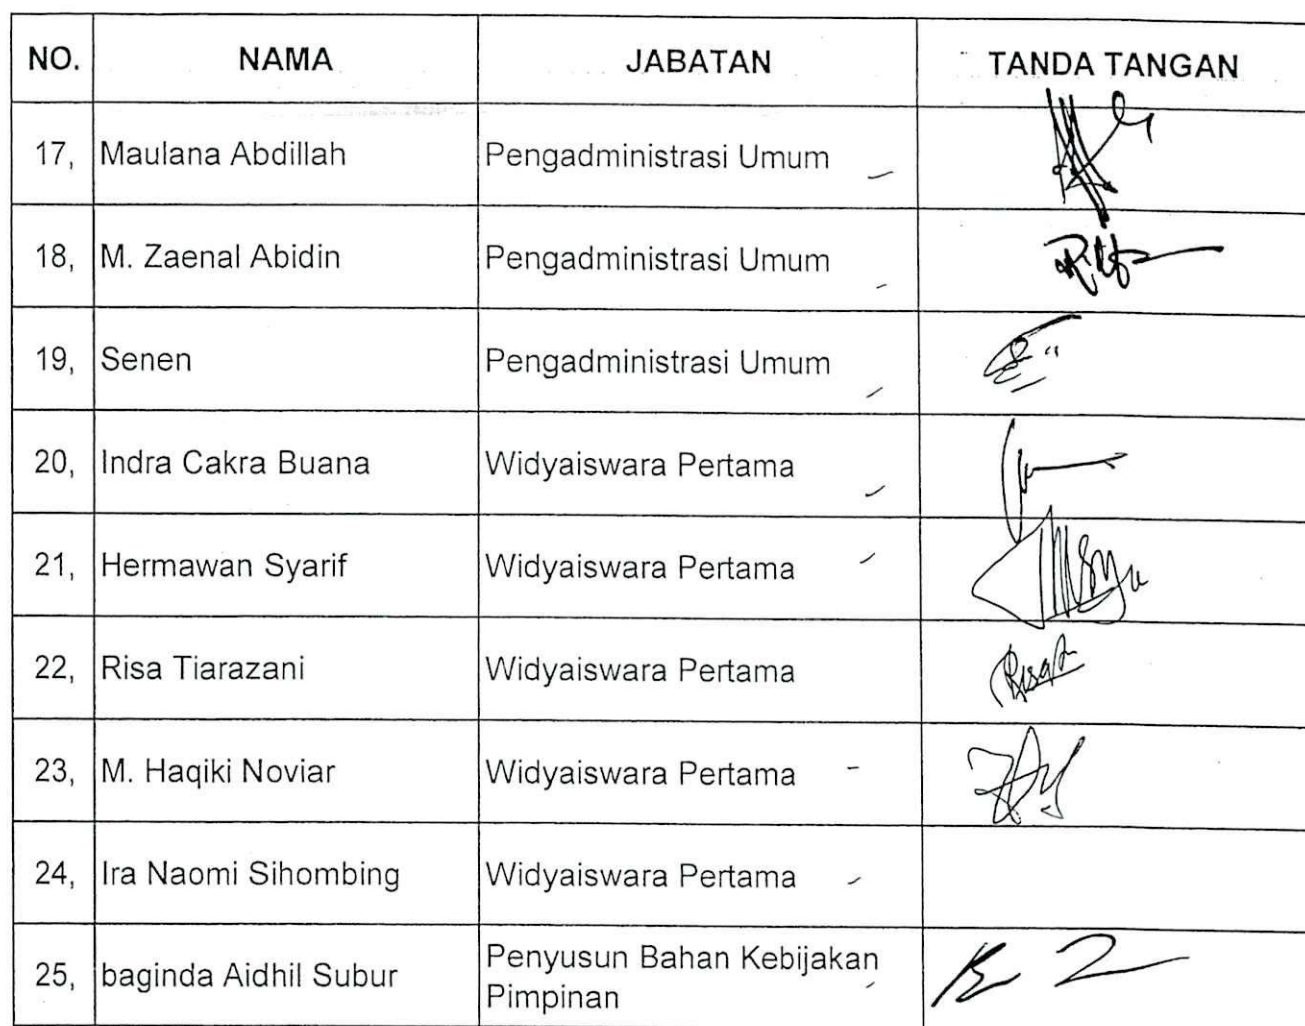 NO. NAMA JABATAN TANDA TANGAN
17, Maulana Abdillah Pengadministrasi Umum
18, M. Zaenal Abidin Pengadministrasi Umum
19, Senen Pengadministrasi Umum
20, Indra Cakra Buana Widyaiswara Pertama
21, Hermawan Syarif Widyaiswara Pertama
22, Risa Tiarazani Widyaiswara Pertama
23, M. Haqiki Noviar Widyaiswara Pertama
24, Ira Naomi Sihombing Widyaiswara Pertama
25, baginda Aidhil Subur Penyusun Bahan Kebijakan
Pimpinan